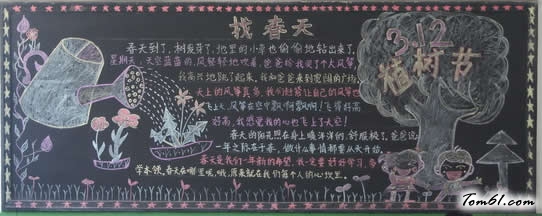 找春天
春天到了，树发芽了，地里的小草也偷偷地钻出来了，
星期天，天空蓝蓝的，风轻轻地吹着，爸爸给我买了个大风筝，
我高兴地跳了起来，我和爸爸来到宽阔的广场，
天上的风筝真多，我们赶紧让自己的风筝也
飞上天，风筝在空中飘啊飘啊！飞得好高
好高，我感觉我的心也飞上了天空！
春天的阳光照在身上暖洋洋的，舒服极了，爸爸说
一年之际在于春，做什么事情都要从天开始，
春天是我们一年新的希望，我一定要好好学习，多
学本领，春天在哪里呢，哦，原来就在我们每个人的心坎里。
3.12
植树节
Tom61.com